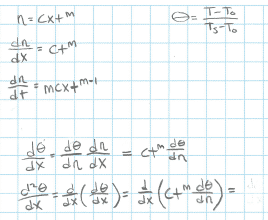 η = cx t^m
Θ = (T - T₀)/(Tₛ - T₀)
dη/dx = c t^m
dη/dt = mcx t^(m-1)
dΘ/dx = dΘ/dη dη/dx = c t^m dΘ/dη
d²Θ/dx = d/dx (dΘ/dx) = d/dx (c t^m dΘ/dη) =